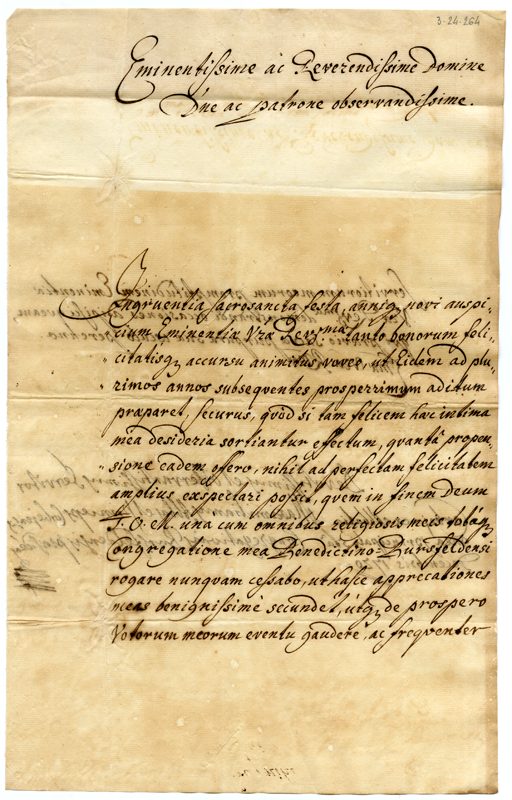 3-24-264
Eminentissime ac Reverendissime Domine
Dñe ac patrone observandissime.
Ingruentia sacrosancta festa, anniq, novi auspi-
cium Eminentiæ Vræ Revs.mæ tanto bonorum feli-
citatisq, accursu animitus voveo, ut Eidem ad plu-
rimos annos subsequentes prosperrimum aditum
præparet, securus, quòd si tam felicem hac intima
mea desideria sortiantur effectum, quantâ propen-
sione eadem offero, nihil ad perfectam felicitatem
amplius exspectari possit, quem in finem Deum
T. O. M. una cum omnibus religiosis meis totáq,
Congregatione mea Benedictino-Bursfeldensi
rogare nunquam cessabo, ut hasce apprecationes
meas benignissimè secundet, utq, de prospero
Votorum meorum eventu gaudere, ac frequenter